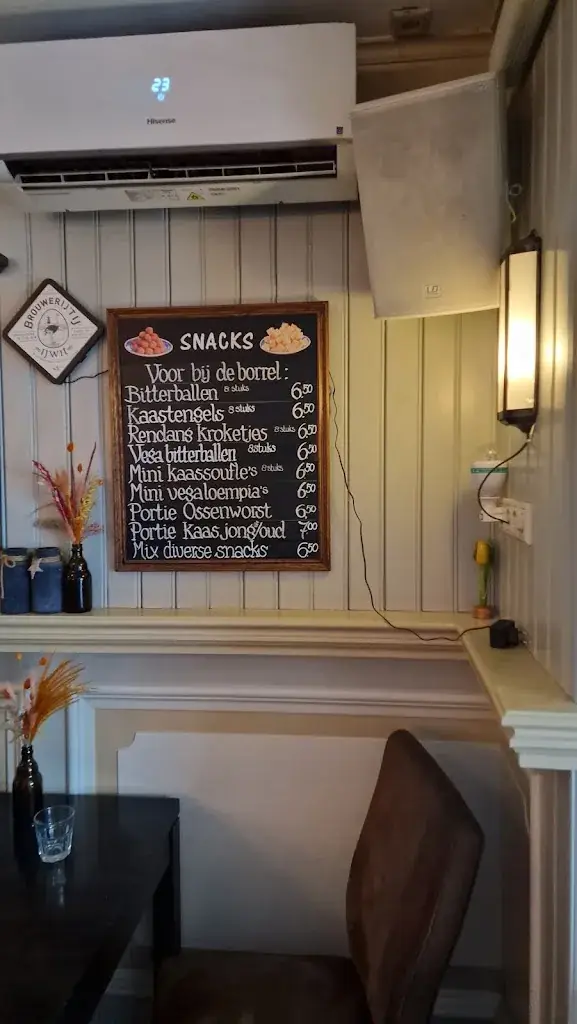 23
Hisense
LD
BROUWERIJ TIJ
IJWIT
SNACKS
Voor bij de borrel:
Bitterballen 8 stuks 6,50
Kaastengels 8 stuks 6,50
Rendang kroketjes 8 stuks 6,50
Vega bitterballen 8 stuks 6,50
Mini kaassoufle's 8 stuks 6,50
Mini vegaloempia's 6,50
Portie Ossenworst 6,50
Portie Kaas jong/oud 7,00
Mix diverse snacks 6,50